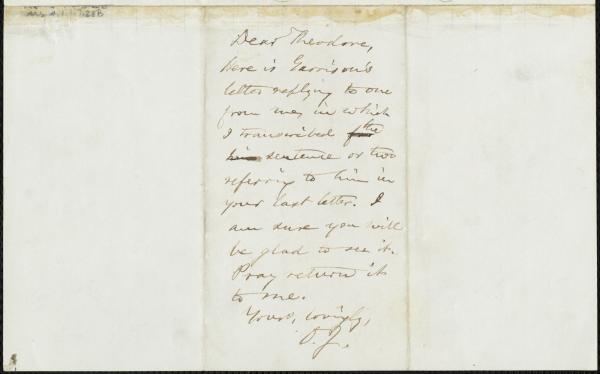 Dear Theodore,
here is Garrison's
letter replying to one
from me, in which
I transcribed the
sentence or two
referring to him in
your last letter. I
am sure you will
be glad to see it.
Pray return it
to me.
Yours, lovingly,
O. J.